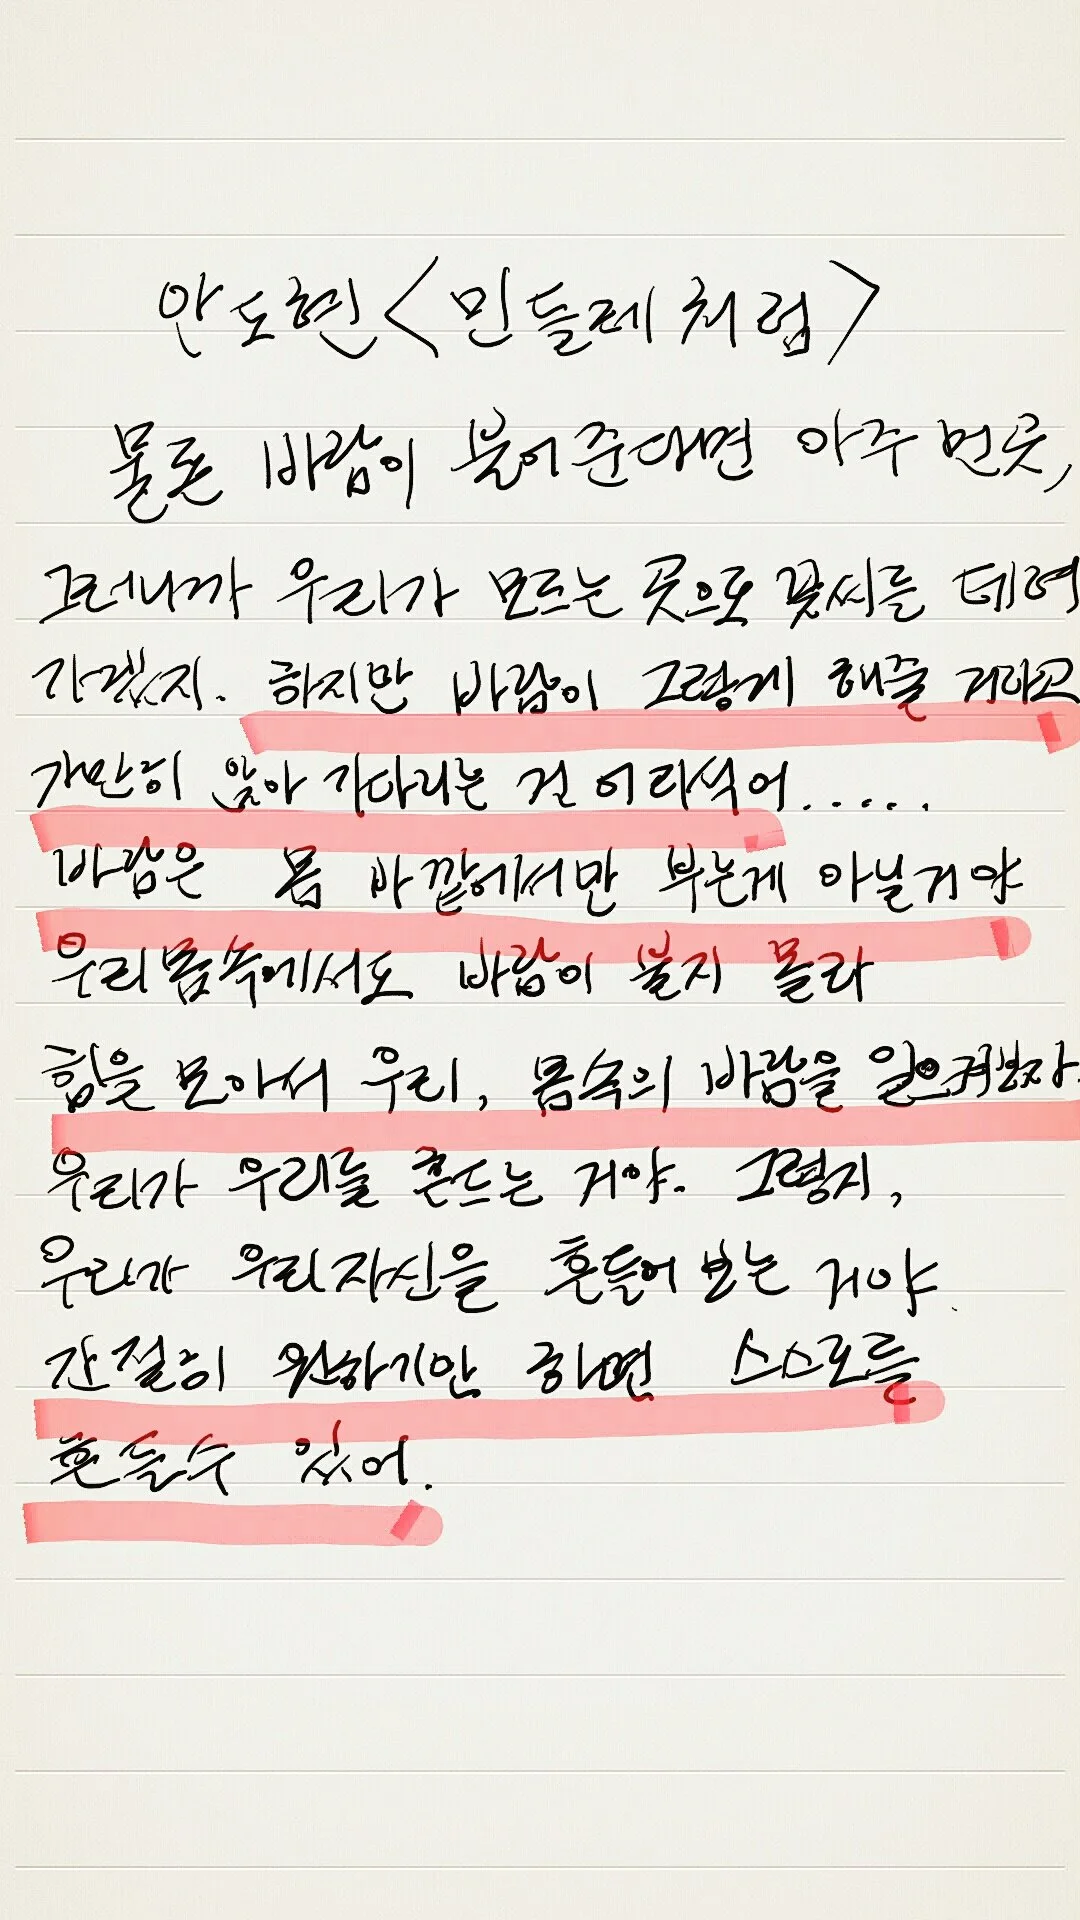 안도현<민들레처럼>
물론 바람이 불어준다면 아주 먼곳,
그러니까 우리가 모르는 곳으로 꽃씨를 데려
가겠지. 하지만 바람이 그렇게 해줄 거라고
가만히 앉아 기다리는 건 어리석어.....
바람은 몸 바깥에서만 부는게 아닐거야
우리몸속에서도 바람이 불지 몰라
힘을 모아서 우리, 몸속의 바람을 일으켜보자.
우리가 우리를 흔드는 거야. 그렇지,
우리가 우리자신을 흔들어 보는 거야.
간절히 원하기만 하면 스스로를
흔들수 있어.